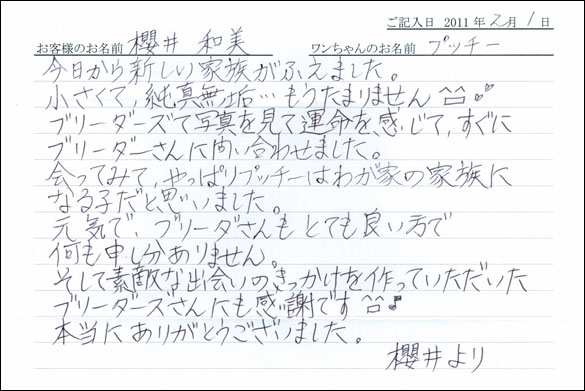 ご記入日 2011年2月1日
お客様のお名前 櫻井 和美 ワンちゃんのお名前 プッチー
今日から新しい家族がふえました。
小さくて,純真無垢…もうたまりません^^♪♪
ブリーダーズで写真を見て運命を感じて,すぐに
ブリーダーさんに問い合わせました。
会ってみて,やっぱりプッチーはわが家の家族に
なる子だと思いました。
元気で,ブリーダさんもとても良い方で
何も申し分ありません。
そして素敵な出会いのきっかけを作っていただいた
ブリーダーズさんにも感謝です^^♪
本当にありがとうございました。
櫻井より